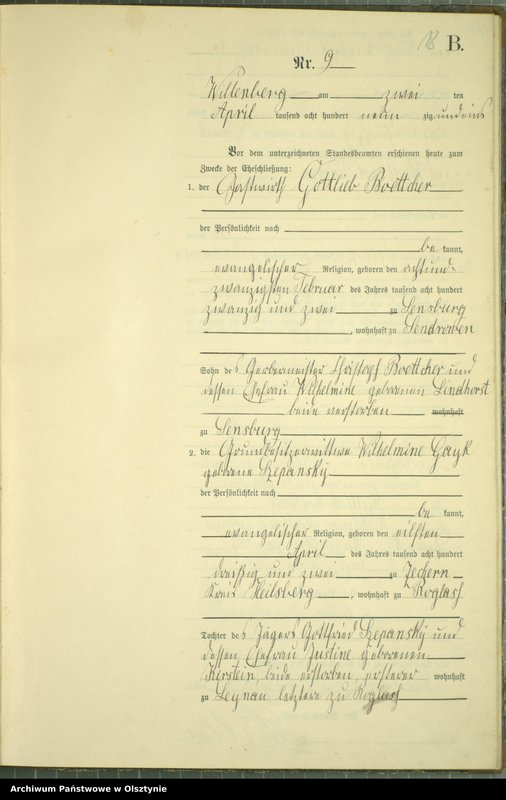 B.
Nr. 9
Willenberg am zwei ten
April tausend acht hundert neun zig undeins
Vor dem unterzeichneten Standesbeamten erschienen heute zum
Zwecke der Eheschließung:
1. der Gastwirth Gottlieb Boettcher
der Persönlichkeit nach
be kannt,
evangelischer Religion, geboren den achtund-
zwanzigsten Februar des Jahres tausend acht hundert
zwanzig und zwei zu Sensburg
, wohnhaft zu Sendrowen
Sohn des Gerbermeister Christoph Boettcher und
dessen Ehefrau Wilhelmine geborenen Lindhorst
beide verstorben wohnhaft
zu Sensburg
2. die Grundbesitzerwittwe Wilhelmine Gayk
geborene Szepansky
der Persönlichkeit nach
be kannt,
evangelischer Religion, geboren den eilften
April des Jahres tausend acht hundert
dreißig und zwei zu Zechern
Kreis Heilsberg, wohnhaft zu Roglass
Tochter des Jägers Gottfried Szepansky und
dessen Ehefrau Justine geborenen
Kerstein, beide verstorben, ersterer wohnhaft
zu Leynau letztere zu Roglass
Archiwum Państwowe w Olsztynie